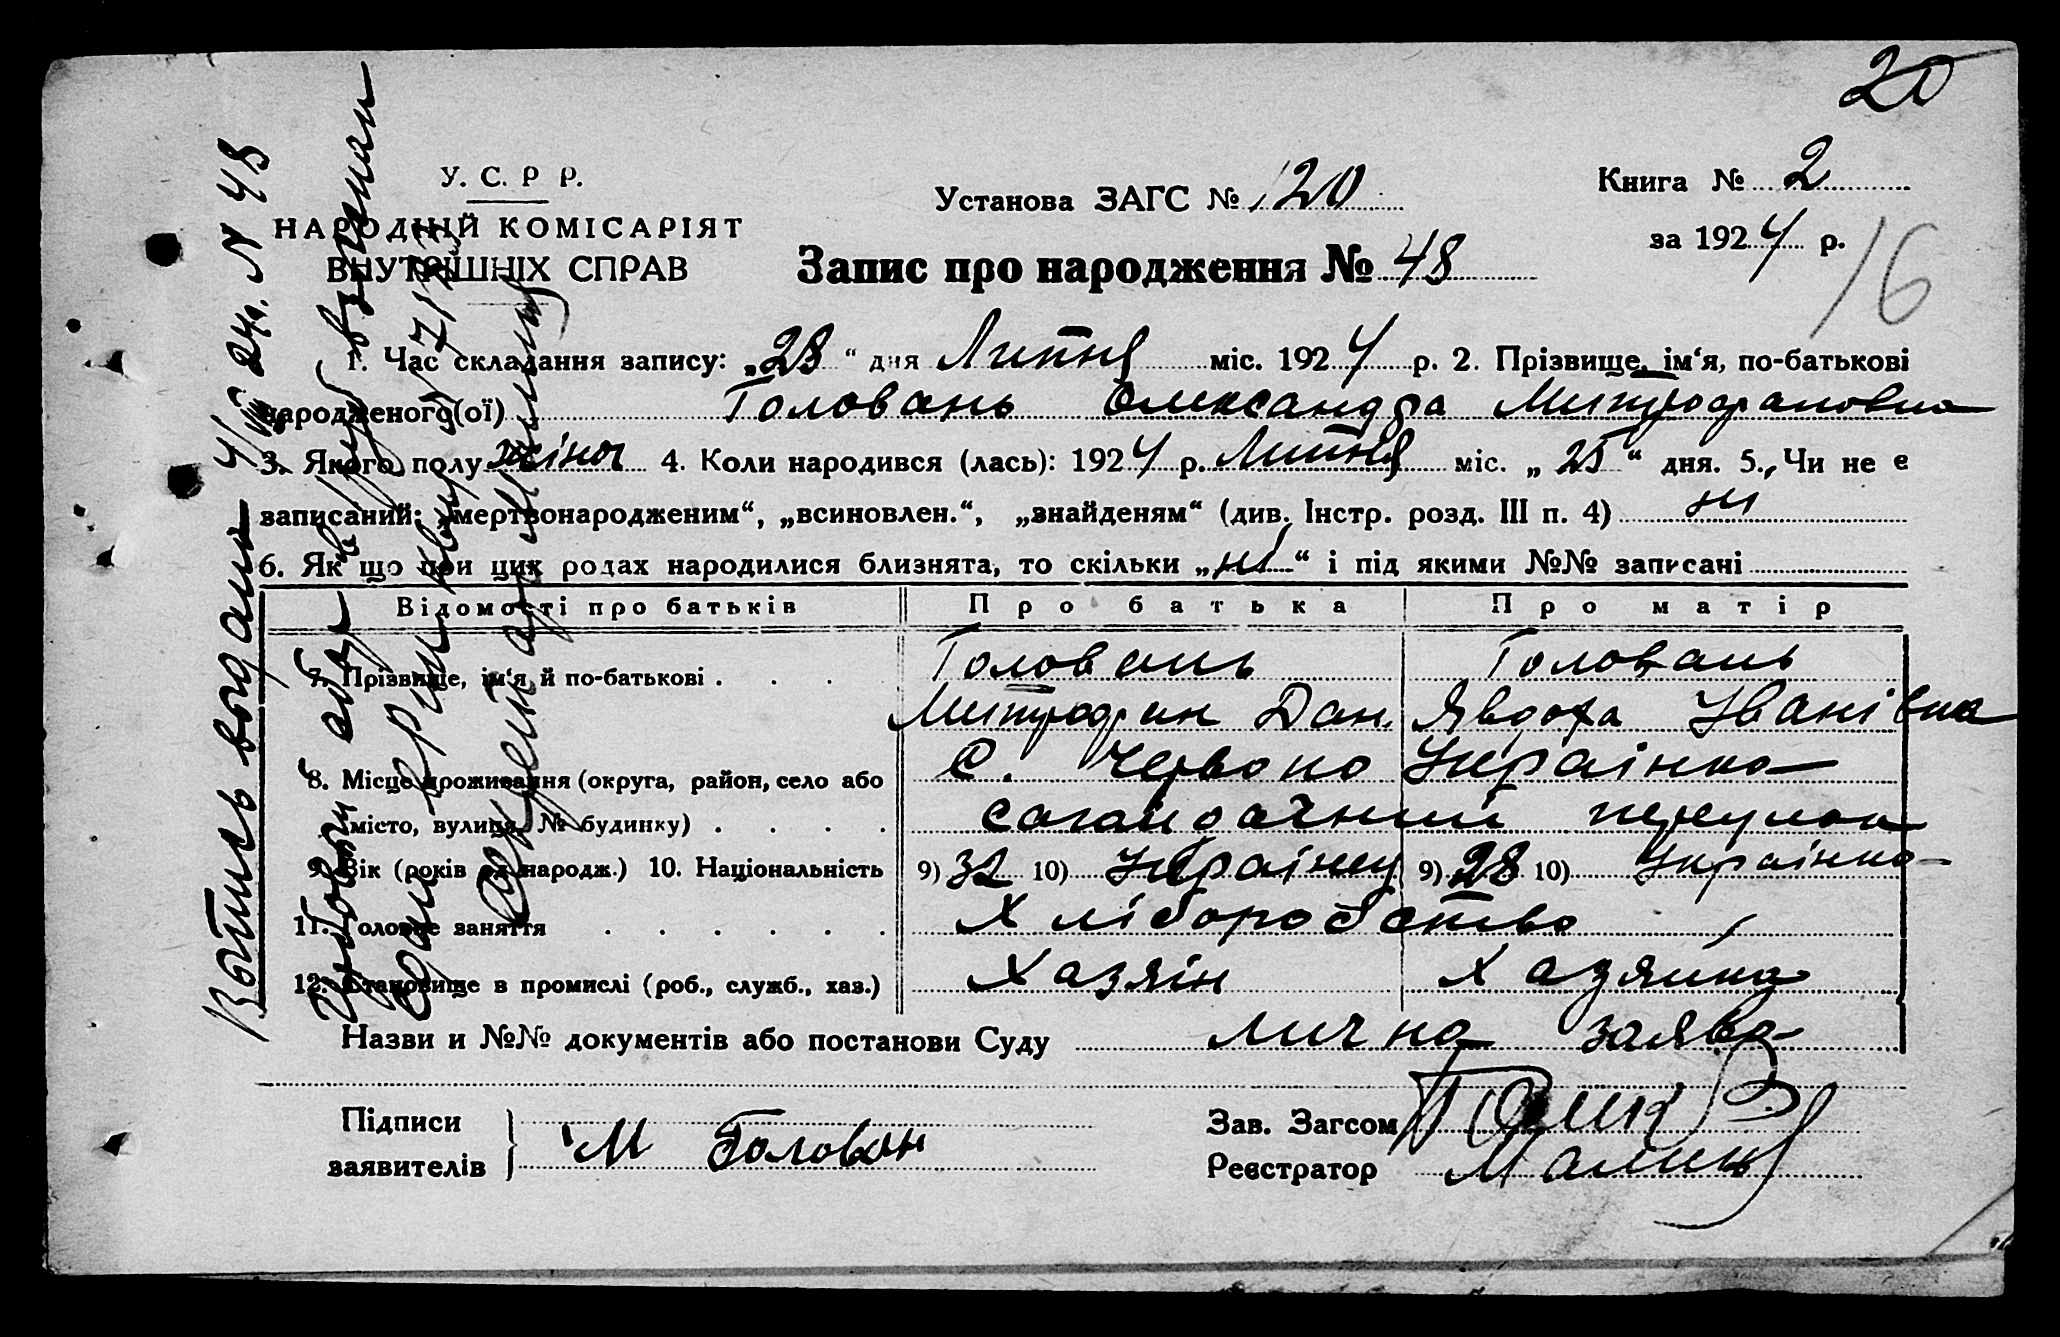 20
У. С. Р Р.
НАРОДНІЙ КОМІСАРІЯТ
ВНУТРІШНІХ СПРАВ
Установа ЗАГС № 120
Книга № 2
за 1924 р.
16
Запис про народження № 48
1. Час складання запису: „28“ дня Липня міс. 1924 р. 2. Прізвище, ім‘я, по-батькові
народженого(ої) Головань Олександра Митрофановна
3. Якого полу жіноч 4. Коли народився (лась): 1924 р. Липня міс. „25“ дня. 5. Чи не є
записаний: „мертвонародженим“, „всиновлен.“, „знайденям“ (див. Інстр. розд. III п. 4) ні
6. Як що при цих родах народилися близнята, то скільки „ні“ і під якими №№ записані
Відомості про батьків Про батька Про матір
7. Прізвище, ім‘я й по-батькові . . . Головань Головань
Митрофан Дан. Явдоха Іванівна
8. Місце проживання (округа, район, село або С. Червоно Українка
місто, вулиця, № будинку) . . . . сагайдачний переулок
9. Вік (років од народж.) 10. Національність 9) 32 10) Українец 9) 28 10) Українка
11. Головне заняття . . . . . . Хліборобство
12. Становище в промислі (роб., служб., хаз.) Хазяін Хазяйка
Назви и №№ документів або постанови Суду лична заява
Підписи
заявителів М Голован
Зав. Загсом
Реєстратор
Вотпсь видана 4/VIII 24р. N 48
взыман